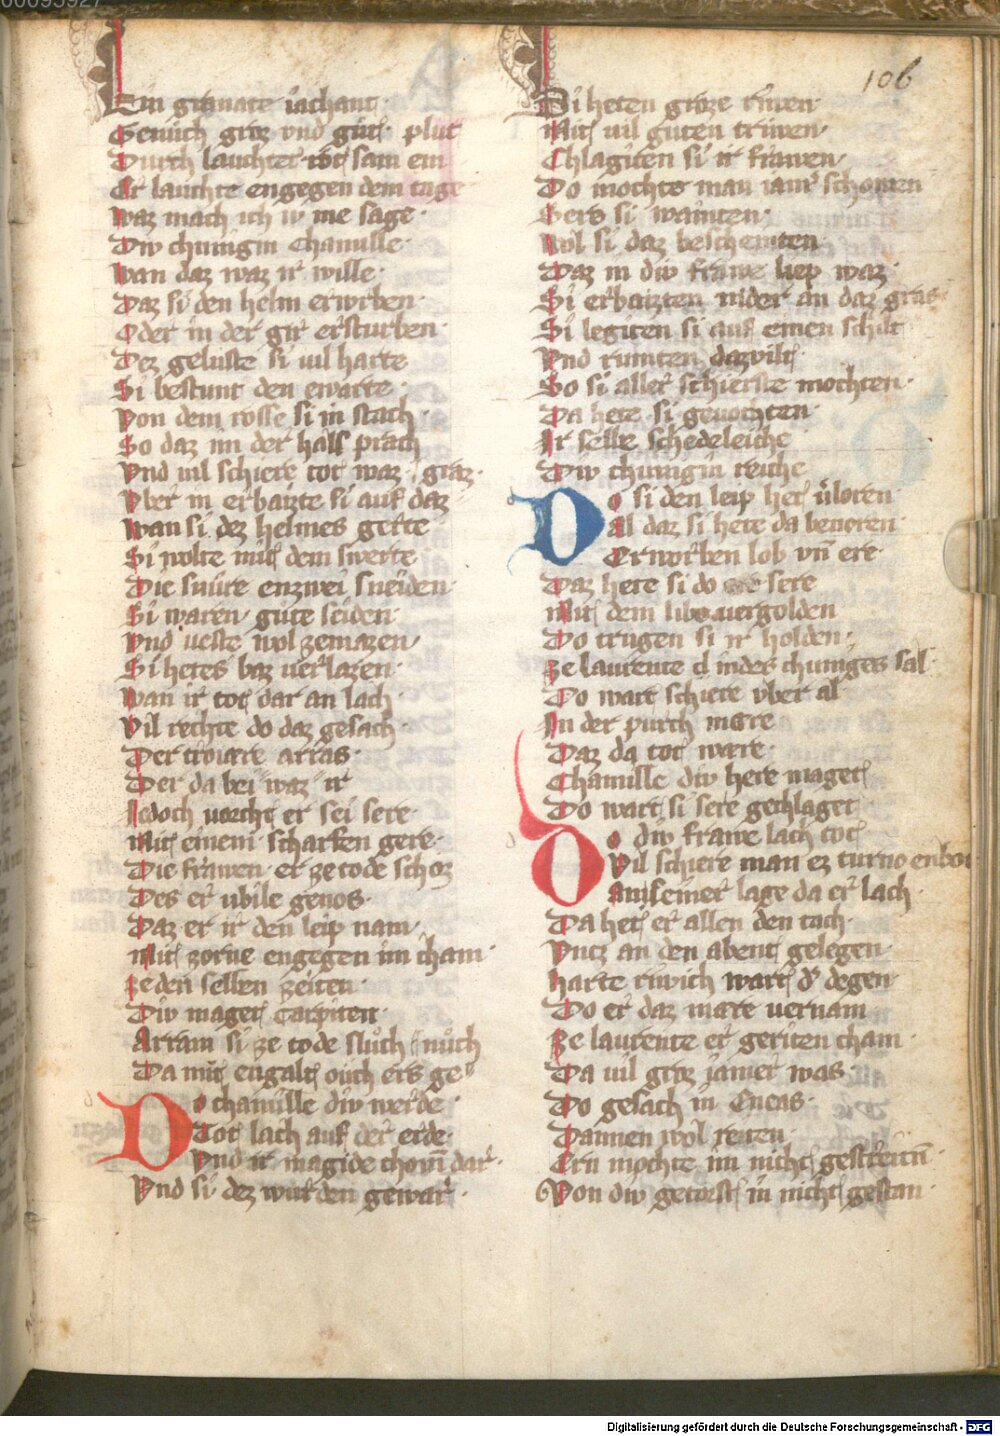 106
Ein granate iachant
Genuch groz vnd gut plut
Durch lauchter rot sam ein
Er lauchte engegen dem tage
Waz mach ich iv me sage
Div chunigin Chamille
Wan daz waz ir wille
Daz si den helm erwrben
Oder in der gir ersturben
Dez geluste si vil harte
Si bestunt den ewarte
Von dem rosse si in stach
So daz im der hals prach
Vnd vil schiere tot waz graz
Vber in erbaizte si auf daz
Wan si dez helmes gerte
Si wolte mit dem swerte
Die snure enzwei sneiden
Si waren gute seiden
Vnd veste wol zemazen
Si hetes baz verlazen
Wan ir tot dar an lach
Vil rechte do daz gesach
Der trovare arras
Der da bei waz ir
Iedoch vorcht er sei sere
Mit einem scharfen gere
Die frawen er ze tode schoz
Des er vbile genos
Daz er ir den leip nam
Mit zorne engegen im cham
ze den selben zeiten
Div maget Tarpiten
Arram si ze tode sluch nuch
Da mit engalt ouch ers ge
Do chamille div werde
Tot lach auf der erde
Vnd ir magide chomn dar
Vnd si dez wurden gewar
Di heten groze riwen
Mit vil guten triwen
Chlagiten si ir frawen
Do mochte man iamer schowen
Sere si wainten
Wol si daz bescheinten
Daz in div frawe liep waz
Si erbaizten nider an daz gras
Si legiten si auf einen schilt
Vnd rumten daz vilt
So si aller schierste mochten
Da hete si gevochten
Ir selbe schedeleiche
Div chunigin reiche
Do si den leip het verloren
Al daz si hete da bevoren
Erworben lob vn ere
Daz hete si do sere
Mit dem libe vergolden
Do trugen si ir holden
ze laurente d in des chuniges sal
Do wart schiere vber al
In der purch mere
Daz da tot were
Chamille div here maget
Do wart si sere gechlaget
Do div frawe lach tot
Vil schiere man ez turno enbot
An seiner lage da er lach
Da het er allen den tach
Vntz an den abent gelegen
harte riwich wart der degen
Do er daz mare vernam
Ze laurente er geriten cham
Da vil groz iamer was
Do gesach in Eneas
Dannen wol reiten
Ern mochte im nicht gestreitn
Von div getorst in nicht gestan
Digitalisierung gefördert durch die Deutsche Forschungsgemeinschaft - DFG